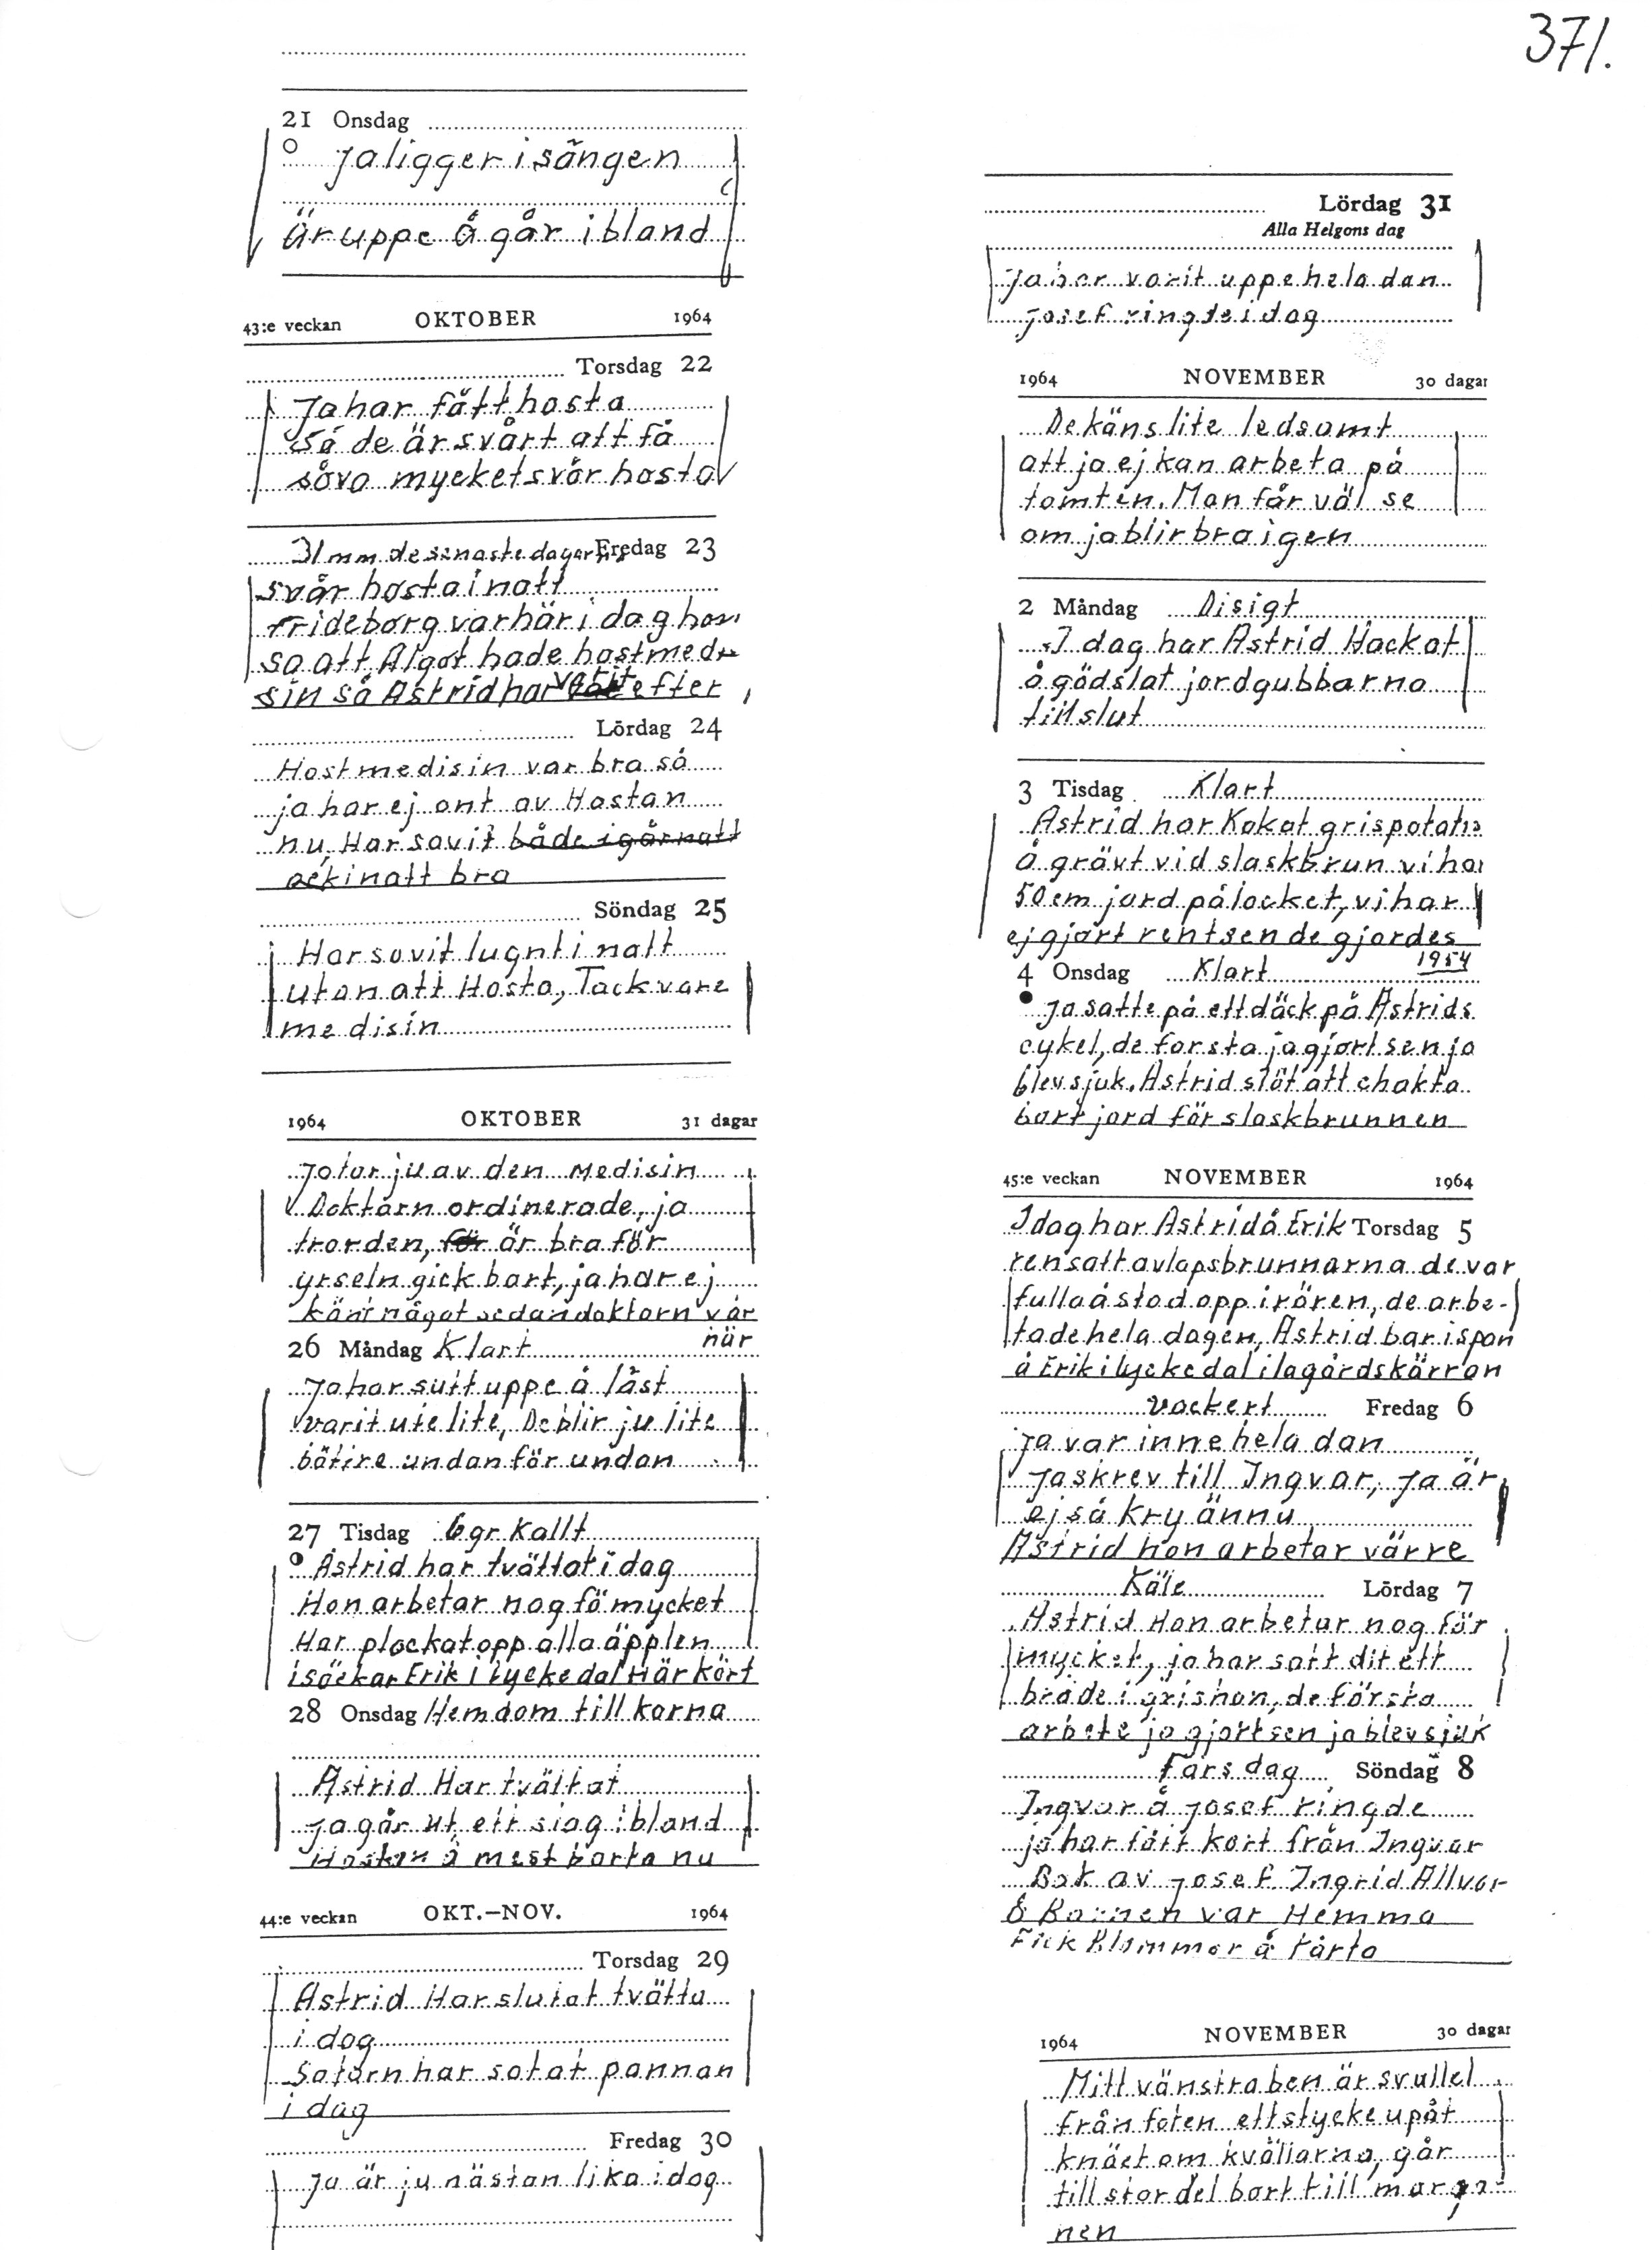 371.
21 Onsdag
Ja ligger i sängen
Är uppe å går ibland
43:e veckan OKTOBER 1964
Torsdag 22
Ja har fått hosta
Så de är svårt att få
såva mycket svår hosta
31 mm de senaste dagarna Fredag 23
svår hosta i natt
Frideborg var här i dag hon
sa att Algot hade hostmedi
sin så Astrid har varit efter
Lördag 24
Hostmedisin var bra så
ja har ej ont av Hostan
nu, Har sovit både igårnatt
ock inatt bra
Söndag 25
Har sovit lugnt i natt
utan att Hosta, Tack vare
medisin
1964 OKTOBER 31 dagar
Ja tar ju av den Medisin
Doktorn ordinerade, ja
tror den, för är bra för
yrseln gick bort, ja har ej
känt något sedan doktorn var
här
26 Måndag Klart
Ja har sutt uppe å läst
varit ute lite, De blir ju lite
bättre undan för undan
27 Tisdag 6 gr Kallt
Astrid har tvättat i dag
Hon arbetar nog fö mycket
Har plockat opp alla äpplen
i säckar Erik i Lyckedal Här kört
28 Onsdag Hem dom till korna
Astrid Har tvättat
Ja går ut ett slag ibland
Hostan å mest borta nu
44:e veckan OKT.–NOV. 1964
Torsdag 29
Astrid Har slutat tvätta
i dag
Sotarn har sotat pannan
i dag
Fredag 30
Ja är ju nästan lika i dag
Lördag 31
Alla Helgons dag
Ja har varit uppe hela dan
Josef ringde i dag
1964 NOVEMBER 30 dagar
De käns lite ledsamt
att ja ej kan arbeta på
tomten. Man får väl se
om ja blir bra igen
2 Måndag Disigt
I dag har Astrid Hackat
å gödslat jordgubbarna
till slut
3 Tisdag Klart
Astrid har Kokat grispotatis
å grävt vid slaskbrun vi har
50 cm jord på locket, vi har
ej gjort rent sen de gjordes
1954
4 Onsdag Klart
Ja satte på ett däck på Astrids
cykel, de första ja gjort sen ja
blev sjuk. Astrid slöt att chakta
bort jord för slaskbrunnen
45:e veckan NOVEMBER 1964
I dag har Astrid å Erik Torsdag 5
rensatt avlopsbrunnarna de var
fulla å stod opp i rören, de arbe-
tade hela dagen, Astrid bar i span
å Erik i Lyckedal i lagårdskärran
vackert Fredag 6
Ja var inne hela dan
Ja skrev till Ingvar, Ja är
ej så kry ännu
Astrid hon arbetar värre
Käle Lördag 7
Astrid Hon arbetar nog för
mycket, ja har satt dit ett
bräde i grishon, de första
arbete ja gjort sen ja blev sjuk
Fars dag Söndag 8
Ingvar å Josef ringde
ja har fått kort från Ingvar
Bok av Josef. Ingrid Allvar
å Barnen var Hemma
Fick Blommor å tårta
1964 NOVEMBER 30 dagar
Mitt vänstra ben är svullet
från foten ett stycke upåt
knäet om kvällarna, går
till stor del bort till morgo-
nen